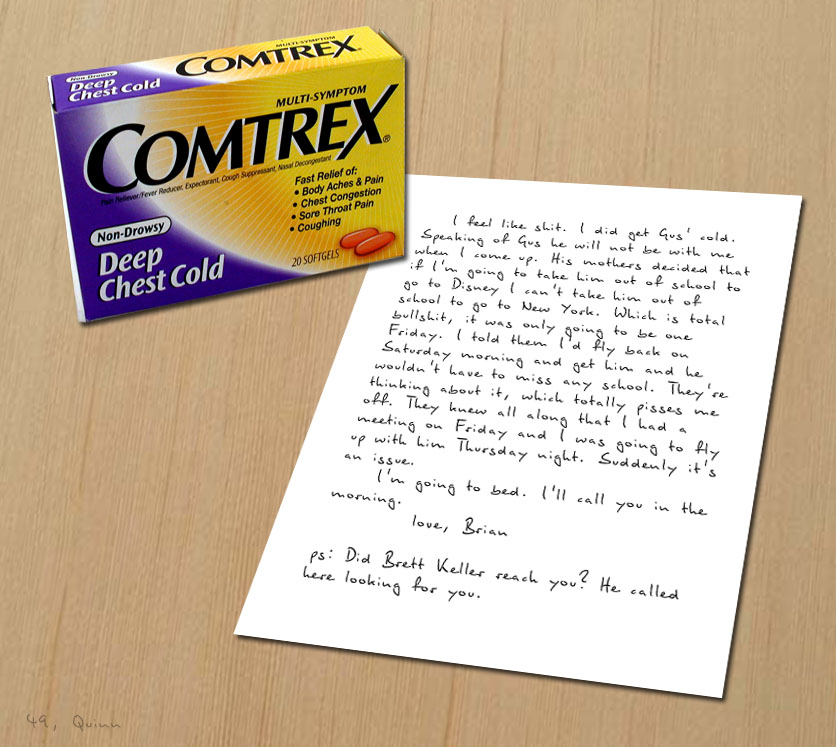 MULTI-SYMPTOM
COMTREX®
Non-Drowsy
Deep
Chest Cold
MULTI-SYMPTOM
COMTREX®
Pain Reliever/Fever Reducer, Expectorant, Cough Suppressant, Nasal Decongestant
Fast Relief of:
• Body Aches & Pain
• Chest Congestion
• Sore Throat Pain
• Coughing
Non-Drowsy
Deep
Chest Cold
20 SOFTGELS
I feel like shit. I did get Gus' cold.
Speaking of Gus he will not be with me
when I come up. His mothers decided that
if I'm going to take him out of school to
go to Disney I can't take him out of
school to go to New York. Which is total
bullshit, it was only going to be one
Friday. I told them I'd fly back on
Saturday morning and get him and he
wouldn't have to miss any school. They're
thinking about it, which totally pisses me
off. They knew all along that I had a
meeting on Friday and I was going to fly
up with him Thursday night. Suddenly it's
an issue.
I'm going to bed. I'll call you in the
morning.
love, Brian
ps: Did Brett Keller reach you? He called
here looking for you.
49, Quinn